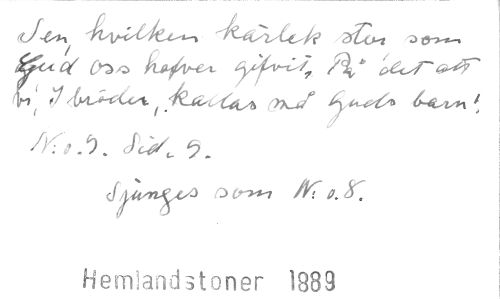 Sen, hvilken kärlek stor som
Gud oss hafver gifvit, På det att
vi, I bröder, kallas må Guds barn!
N:o.9. Sid. 9.
Sjunges som N:o.8.
Hemlandstoner 1889